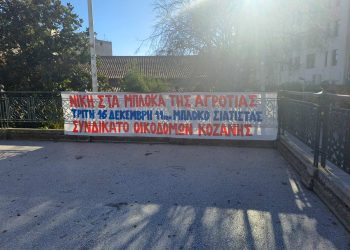 ΝΙΚΗ ΣΤΑ ΜΠΛΟΚΑ ΤΗΣ ΑΓΡΟΤΙΑΣ
ΤΡΙΤΗ 16 ΔΕΚΕΜΒΡΗ 11πμ ΜΠΛΟΚΟ ΣΙΑΤΙΣΤΑΣ
ΣΥΝΔΙΚΑΤΟ ΟΙΚΟΔΟΜΩΝ ΚΟΖΑΝΗΣ